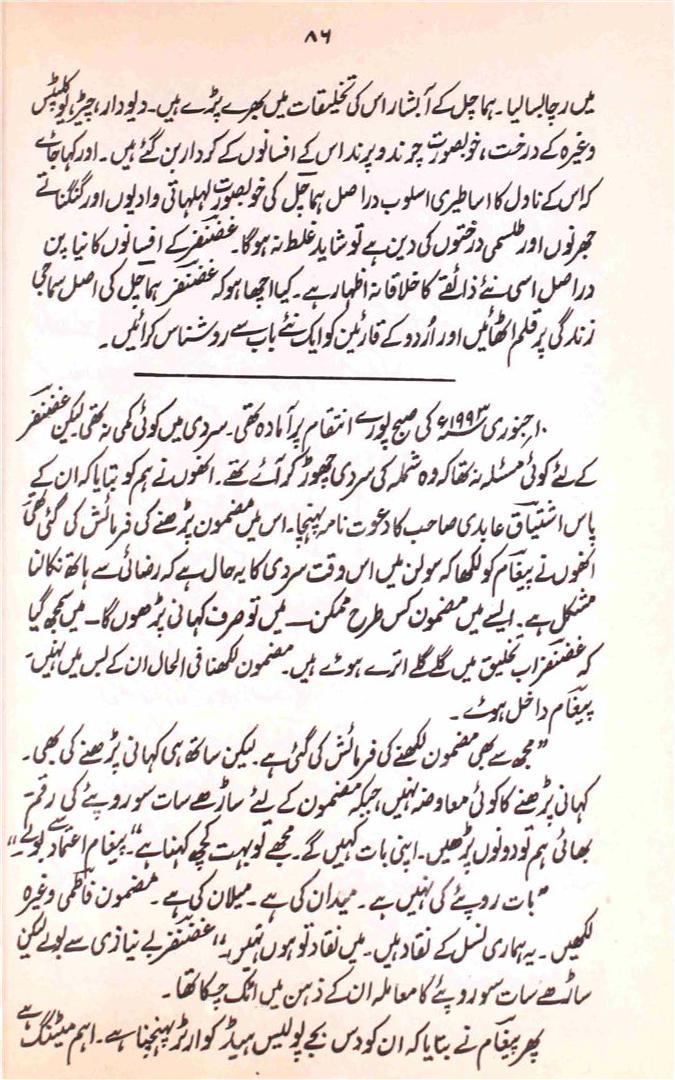 ۸۶
میں رچا بسا لیا۔ ہماچل کے آبشار اس کی تخلیقات میں بھرے پڑے ہیں۔ دیودار، چیڑ، یوکلپٹس
وغیرہ کے درخت، خوبصورت چرند و پرند اس کے افسانوں کے کردار بن گئے ہیں۔ اور کہا جائے
کہ اس کے ناول کا اساطیری اسلوب دراصل ہماچل کی خوبصورت لہلہاتی وادیوں اور گنگناتے
جھرنوں اور طلسمی درختوں کی دین ہے تو شاید غلط نہ ہوگا۔ غضنفر کے افسانوں کا نیا پن
دراصل اسی نئے ذائقے کا خلاقانہ اظہار ہے۔ کیا اچھا ہو کہ غضنفر ہماچل کی اصل سماجی
زندگی پر قلم اٹھائیں اور اُردو کے قارئین کو ایک نئے باب سے روشناس کرائیں۔
۱۰؍جنوری ۱۹۹۳ء کی صبح پورے انتقام پر آمادہ تھی۔ سردی میں کوئی کمی نہ تھی لیکن غضنفر
کے لئے کوئی مسئلہ نہ تھا کہ وہ شملہ کی سردی چھوڑ کر آئے تھے۔ انھوں نے ہم کو بتایا کہ ان کے
پاس اشتیاق عابدی صاحب کا دعوت نامہ پہنچا۔ اس میں مضمون پڑھنے کی فرمائش کی گئی تھی
انھوں نے پیغام کو لکھا کہ سولن میں اس وقت سردی کا یہ حال ہے کہ رضائی سے ہاتھ نکالنا
مشکل ہے۔ ایسے میں مضمون کس طرح ممکن — میں تو صرف کہانی پڑھوں گا۔ میں سمجھ گیا
کہ غضنفر اب تخلیق میں گلے گلے اترے ہوئے ہیں۔ مضمون لکھنا فی الحال ان کے بس میں نہیں۔
پیغام داخل ہوئے۔
”مجھ سے بھی مضمون لکھنے کی فرمائش کی گئی ہے۔ لیکن ساتھ ہی کہانی پڑھنے کی بھی۔
کہانی پڑھنے کا کوئی معاوضہ نہیں، جبکہ مضمون کے لیے ساڑھے سات سو روپئے کی رقم۔
بھائی ہم تو دونوں پڑھیں۔ اپنی بات کہیں گے۔ مجھے تو بہت کچھ کہنا ہے“۔ پیغام اعتماد سے بولے۔
”بات روپئے کی نہیں ہے۔ میدان کی ہے۔ میلان کی ہے۔ مضمون فاطمی وغیرہ
لکھیں۔ یہ ہماری نسل کے نقاد ہیں۔ میں نقاد تو ہوں نہیں“۔ غضنفر بے نیازی سے بولے لیکن
ساڑھے سات سو روپئے کا معاملہ ان کے ذہن میں اٹک چکا تھا۔
پھر پیغام نے بتایا کہ ان کو دس بجے پولیس ہیڈ کوارٹر پہنچنا ہے۔ اہم میٹنگ ہے